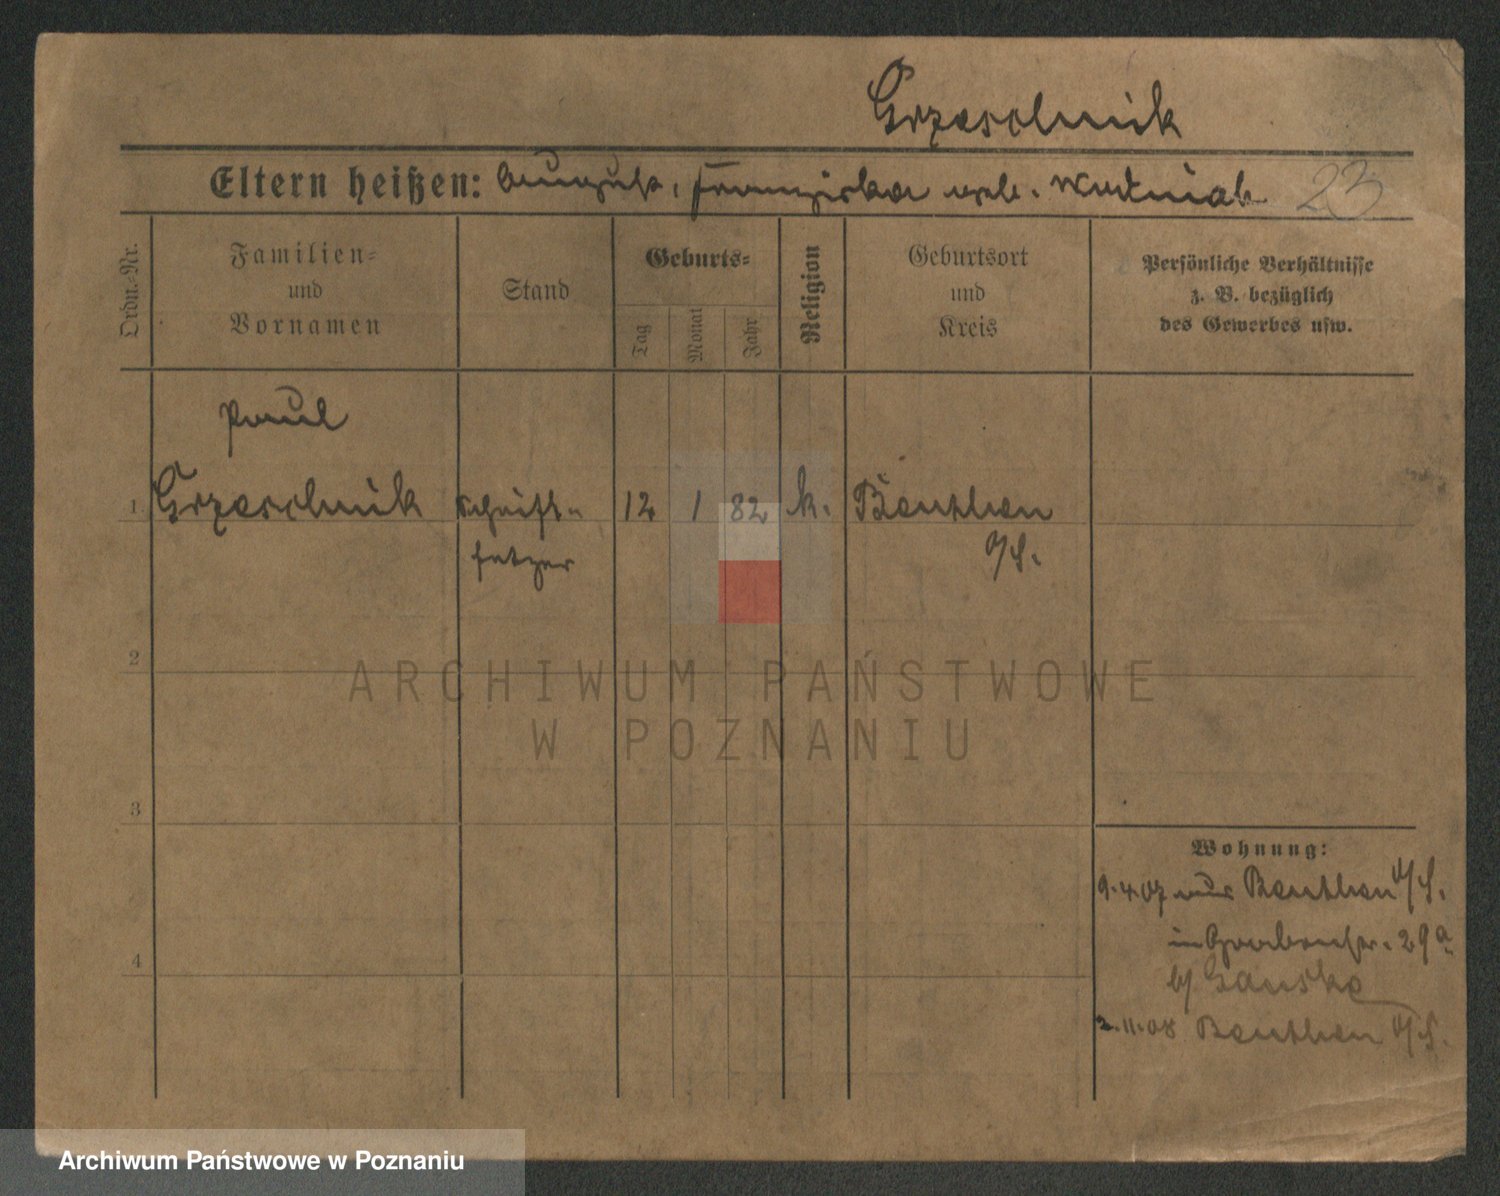 Grzeschnik
Eltern heißen: August, Franziska geb. Wodniak 23
Ordn.-Nr.
Familien-
und
Vornamen
Stand
Geburts-
Tag
Monat
Jahr
Religion
Geburtsort
und
Kreis
Persönliche Verhältnisse
z. B. bezüglich
des Gewerbes usw.
Paul
1 Grzeschnik Schrift- 12 1 82 k. Beuthen
setzer O/S.
2
3
4
Wohnung:
9.4.07 aus Beuthen O/S.
in 29a
b/
2.11.08 Beuthen O/S.
ARCHIWUM PAŃSTWOWE
W POZNANIU
Archiwum Państwowe w Poznaniu